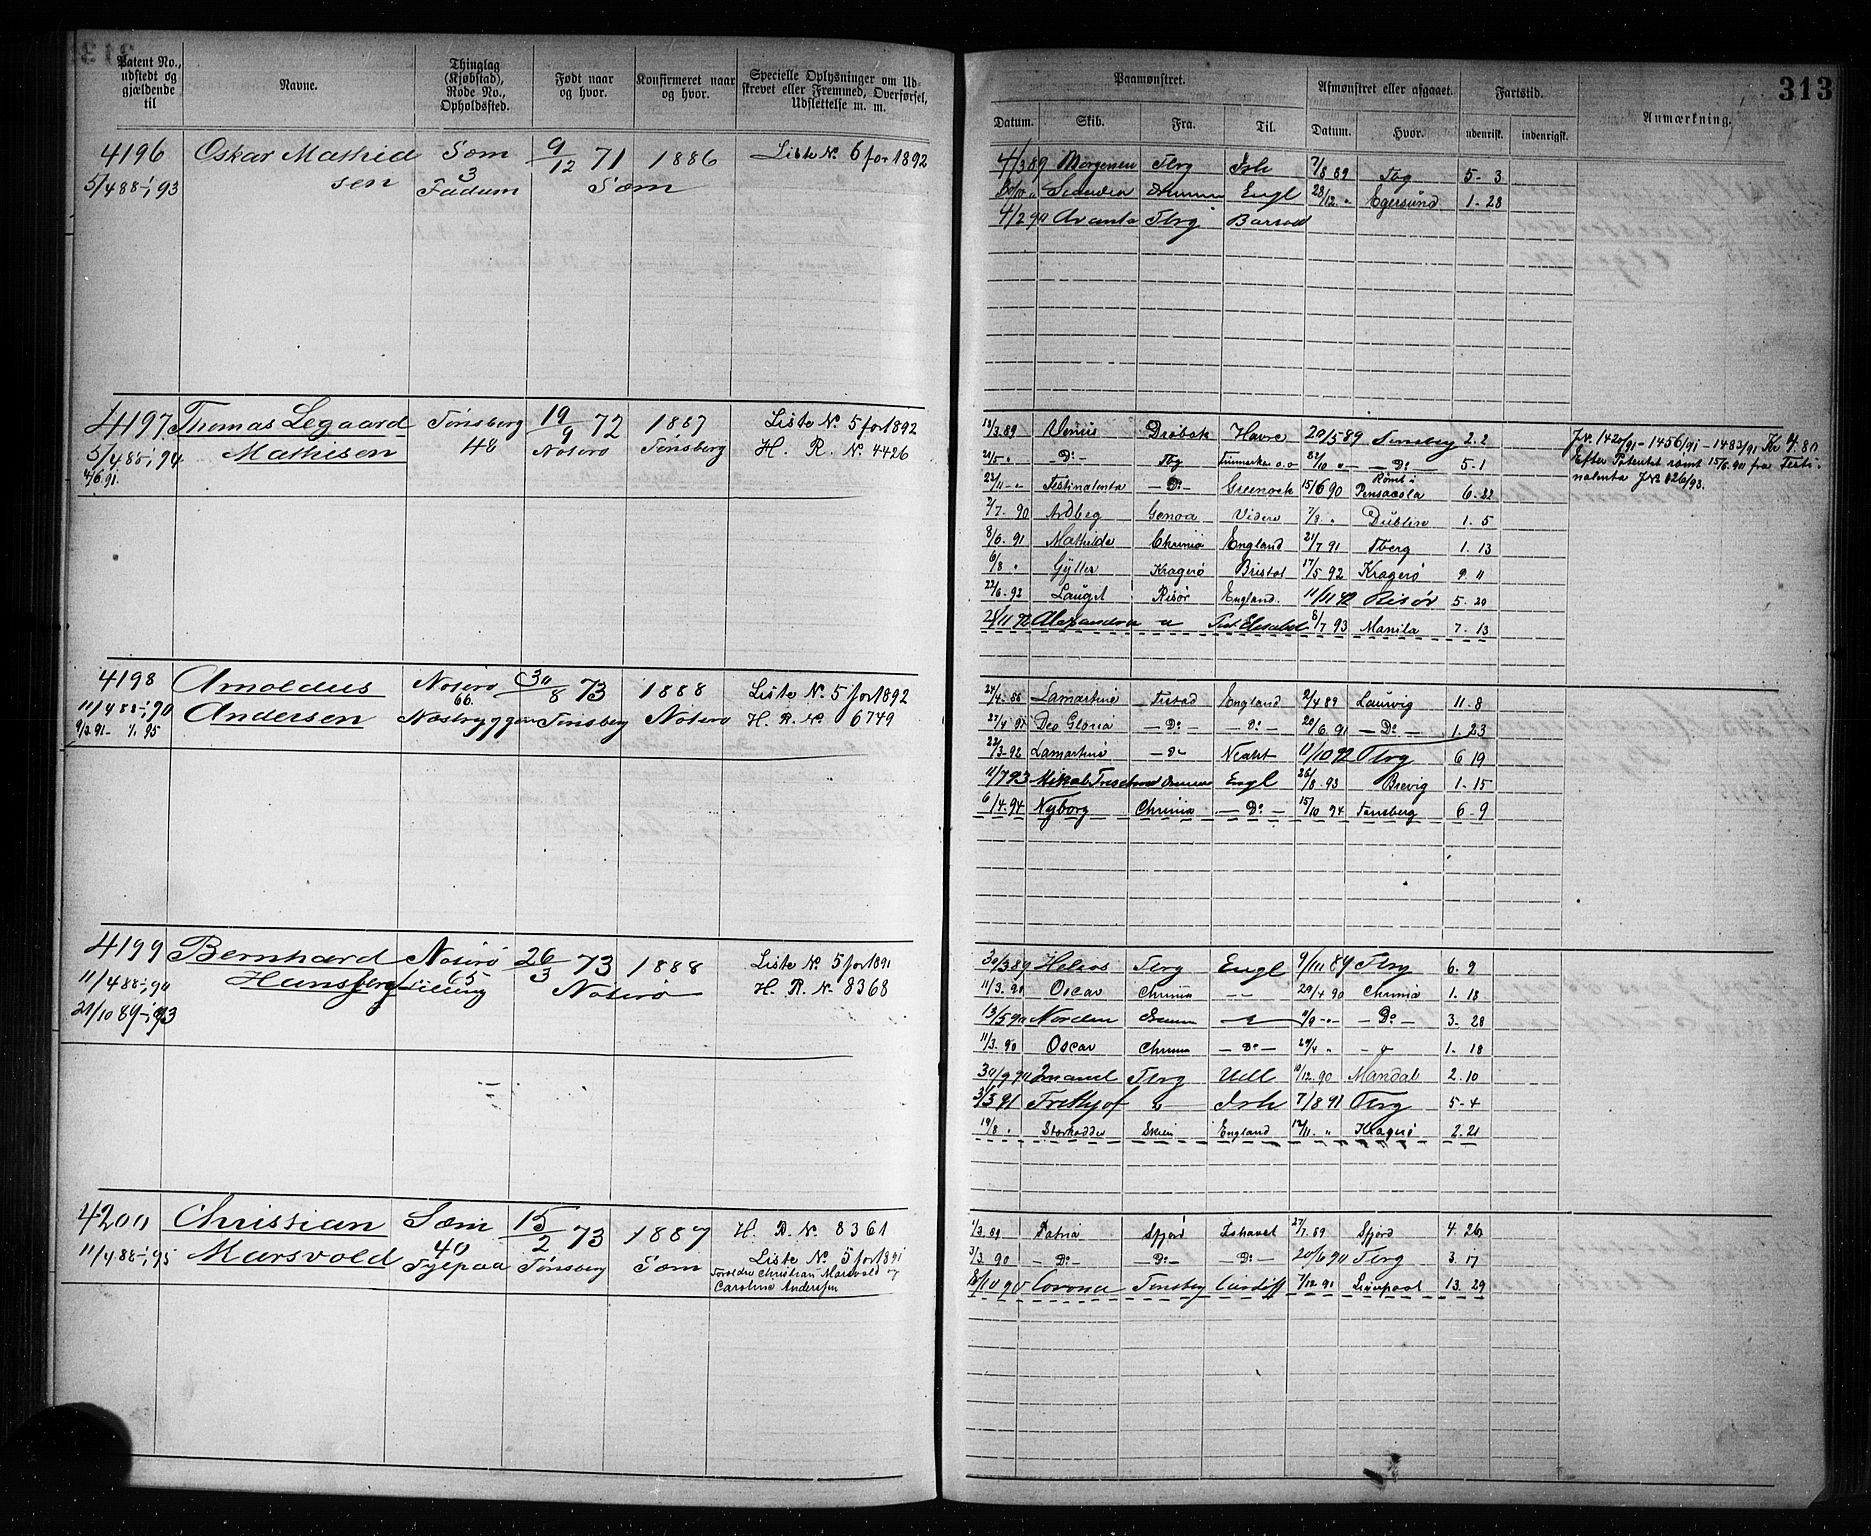 313
Patent No., udstedt og gjældende til
Navne.
Thinglag (Kjøbstad), Rode No., Opholdssted.
Født naar og hvor.
Konfirmeret naar og hvor.
Specielle Oplysninger om Udskrevet eller Fremmed, Overførsel, Udslettelse m. m.
Paamønstret.
Afmønstret eller afgaaet.
Fartstid.
Anmærkning.
Datum. Skib. Fra. Til. Datum. Hvor. udenrigsk. indenrigsk.
4196 Oskar Mathied Sem 9/12 71 1886 Liste No 6 for 1892
5/4 88 - 1/1 93 sen 3 Fadum Sem
4/3 89 Morgenen Tbrg Ish 7/8 89 Tbg 5 - 3
Engl 28/12 " Egersund 1 - 28
4/2 90 Avanta Tbrg
4197 Thomas Legaard Tønsberg 19/9 72 1887 Liste No 5 for 1892
5/4 88 - 1/1 94 Mathisen 48 Nøterø Tønsberg H. R. No 4426
4/6 91
13/3 89 Venus Drøbak Havre 20/5 89 Tønsberg 2. 2
Do - Tbg Finmarken o. o - Do - 5 - 1
Testinalenta - Do - Greenock 15/6 90 Rømt i Pensacola 6. 22
2/7. 90 Ardbeg Genoa Videre 7/8 " Dublin 1. 5
8/6. 91 Mathilde Chrnia England 21/7 91 Tberg 1. 13
6/8 " Gyller Kragerø Bristol 17/5 92 Kragerø 9. 11
22/6 - 92 Lauget Risør England. 11/11 92 Risør 5. 20
Alexandra " Port Elisabet 8/7 93 Manila 7. 13
J.No. 1420/91 - 1456/91 - 1483/91 Kr 4.80
Efter Patentet rømt 15/6. 90 fra Testi-
nalenta J.No 826/93.
4198 Arnoldus Nøterø 30/8 73 1888 Liste No 5 for 1892
11/4 88 - 1/1 90 Andersen 66. Tønsberg Nøterø H. R. No 6749
24/4. 88 Lamartine England 2/4 89 Laurvig 11. 8
Deo Gloria - Do - - Do - 20/6. 91 - Do - 1. 23
22/3 - 92 Lamartine - Do - 11/10 92 Tbrg 6 19
11/7 93 Engl 26/8. 93 Brevig 1. 15
6/4. 94 Nyborg Chrnia - Do - 15/10 94 Tønsberg 6. 9
4199 Bernhard Nøterø 26/3 73 1888 Liste No 5 for 1891
11/4 88 - 1/1 90 Hans 65 Nøterø H. R. No 8368
30/3 89 Helios Tbrg Engl 9/11 89 Tbrg 6. 9
11/3. 90 Oscar Chrnia - - 29/4 90 Chrnia 1. 18
13/5 90 Norden - Do - 3. 28
11/3. 90 Oscar Chrnia - Do - 29/4 " 1. 18
30/9 90 Tbrg Udl 10/12. 90 Mandal 2. 10
3/3 91 Frithjof " Ish 7/8 91 Tbrg 5 - 4
19/8 " Skien England 12/11. " Kragerø 2. 21
4200 Christian Sem 15/2 73 1887 H. R. No 8361
11/4 88 - 1/1 95 Marsvold 40 Tønsberg Sem Liste No 5 for 1891
Forældre Christian Marsvold og
Caroline Andersen
1/3. 89 Patria Sfjord Ishavet 27/7. 89 Sfjord 4. 26
3/3. 90 - Do - - Do - - Do - 20/6 90 Tbrg 3. 17
Corona Tønsberg Cardiff 7/12 91 Liverpool 13. 29